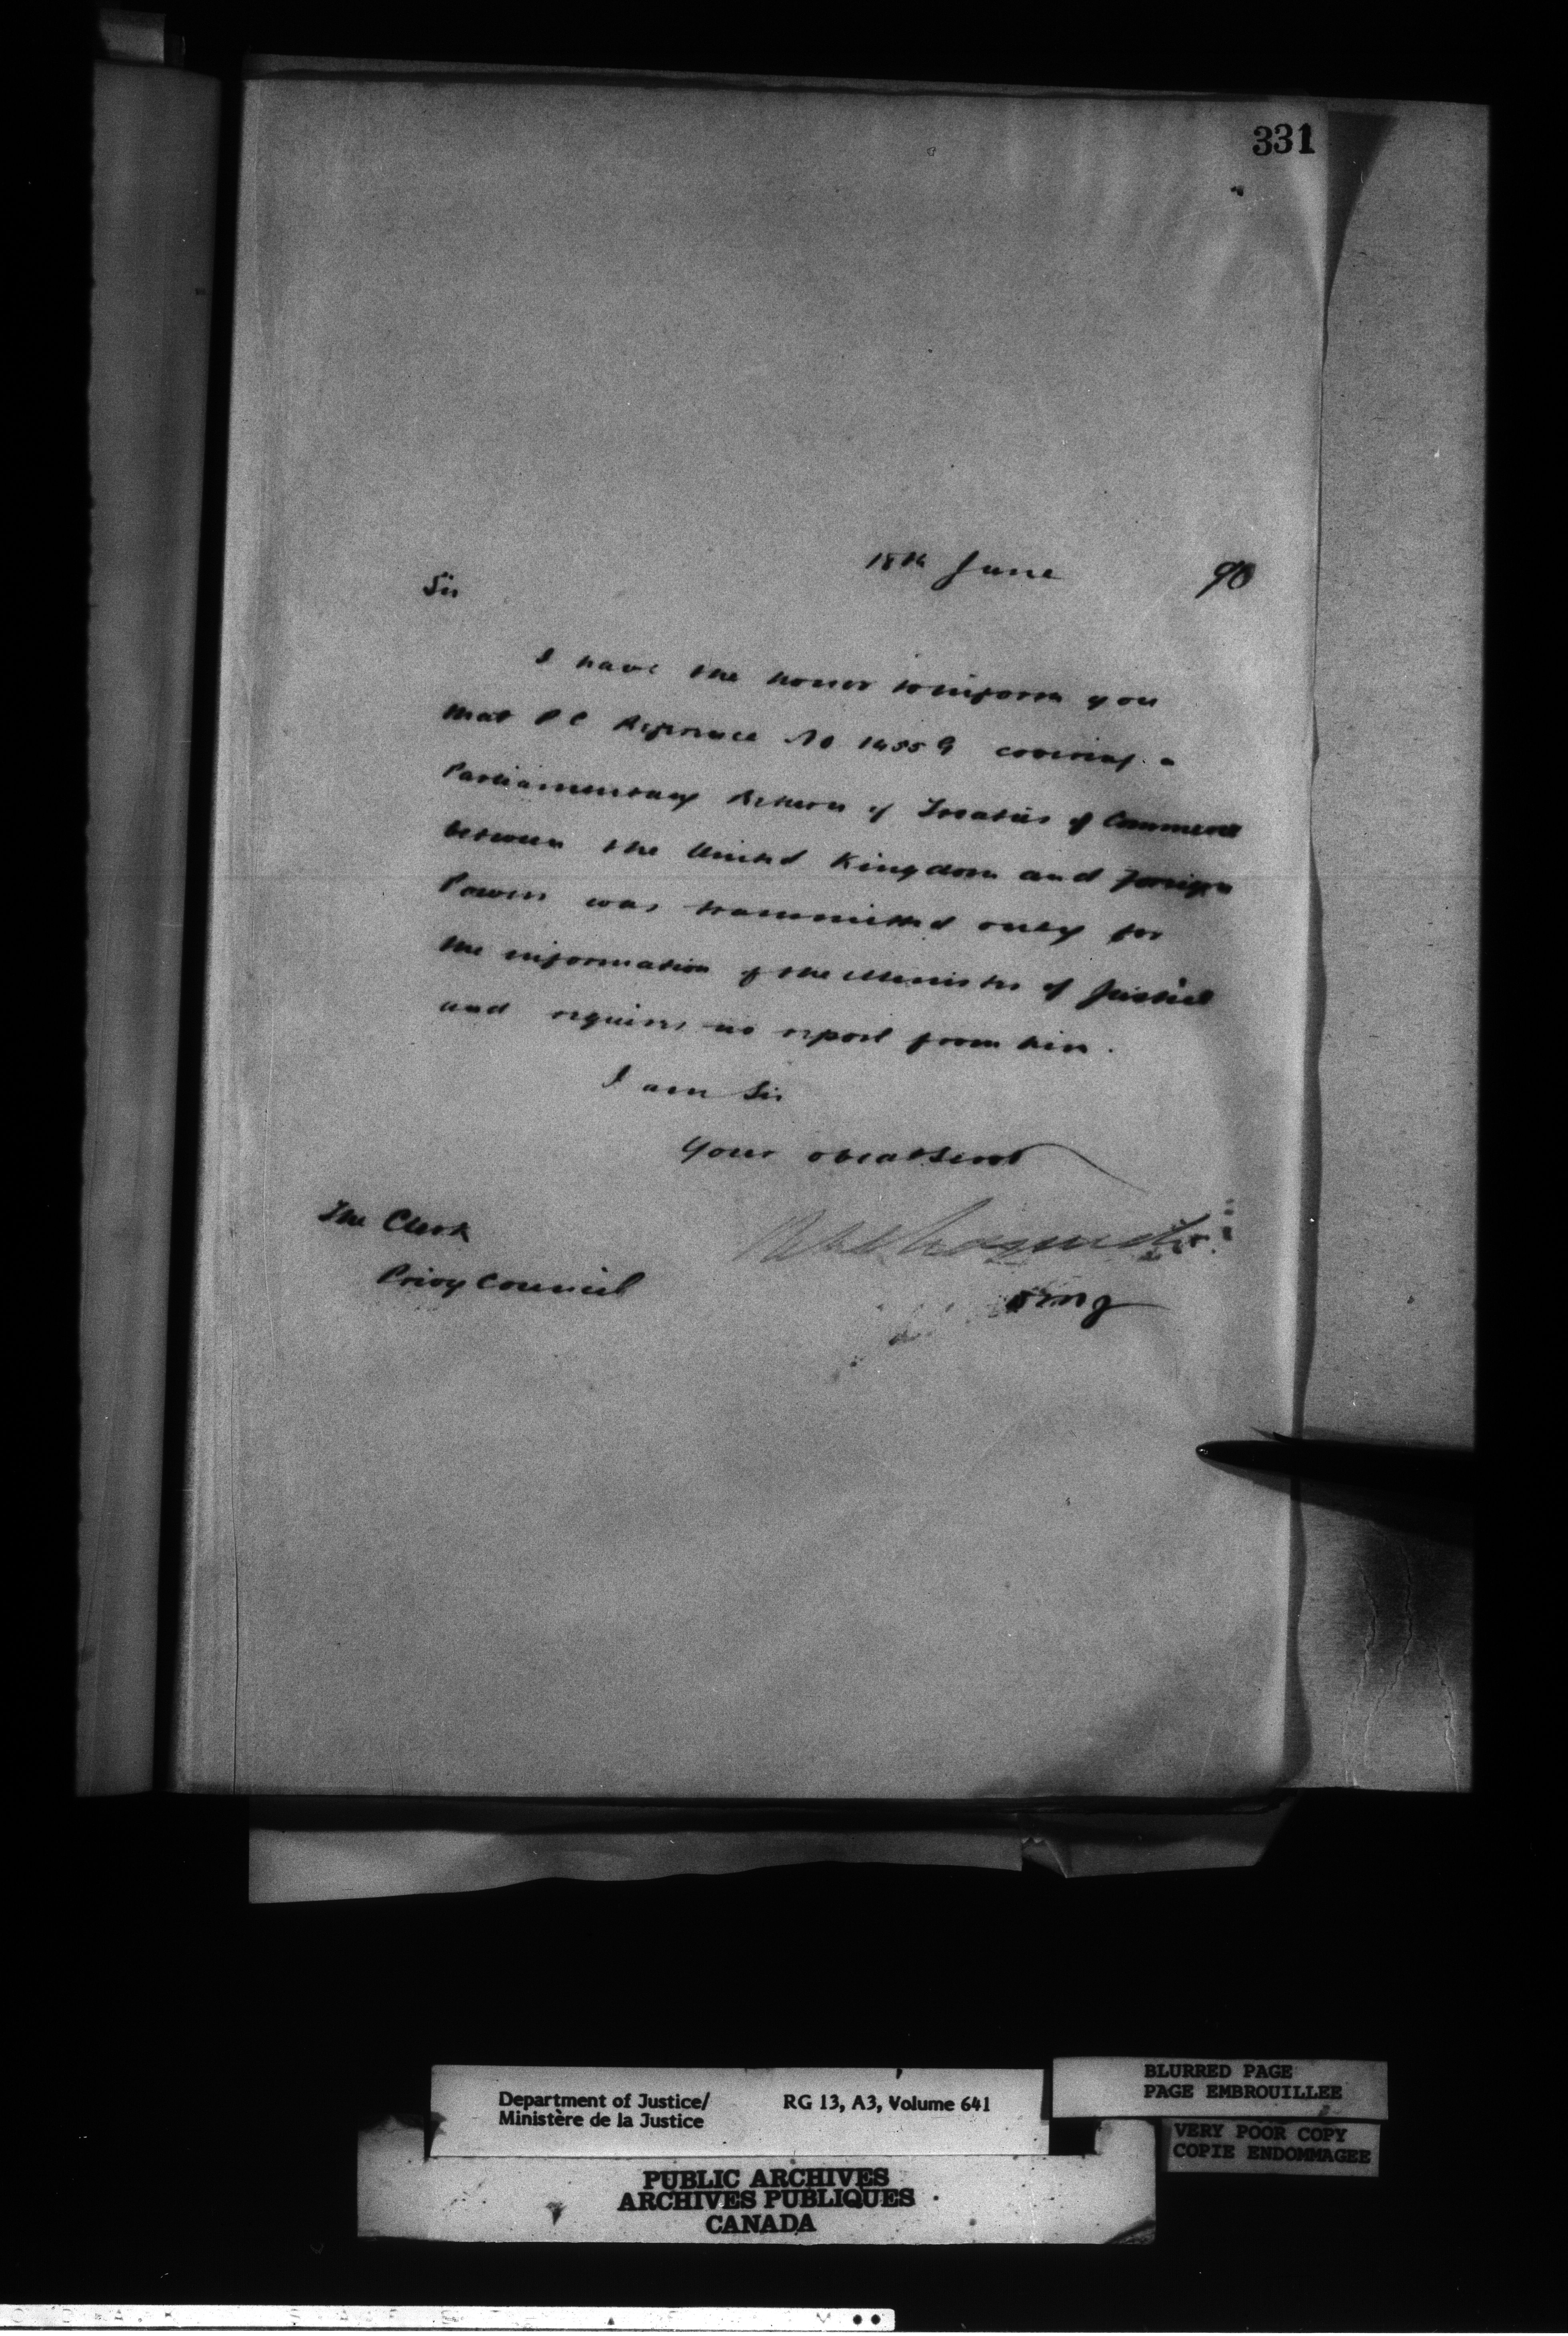 331
18th June 90
Sir
I have the honor to inform you
that P C Reference No 1455 G covering a
Parliamentary Return of Treaties of Commerce
between the United Kingdom and Foreign
Powers was transmitted only for
the information of the Minister of Justice
and requires no report from him.
I am Sir
Your obedt Servt
The Clerk
Privy Council
Department of Justice/
Ministère de la Justice
RG 13, A3, Volume 641
BLURRED PAGE
PAGE EMBROUILLEE
VERY POOR COPY
COPIE ENDOMMAGEE
PUBLIC ARCHIVES
ARCHIVES PUBLIQUES
CANADA